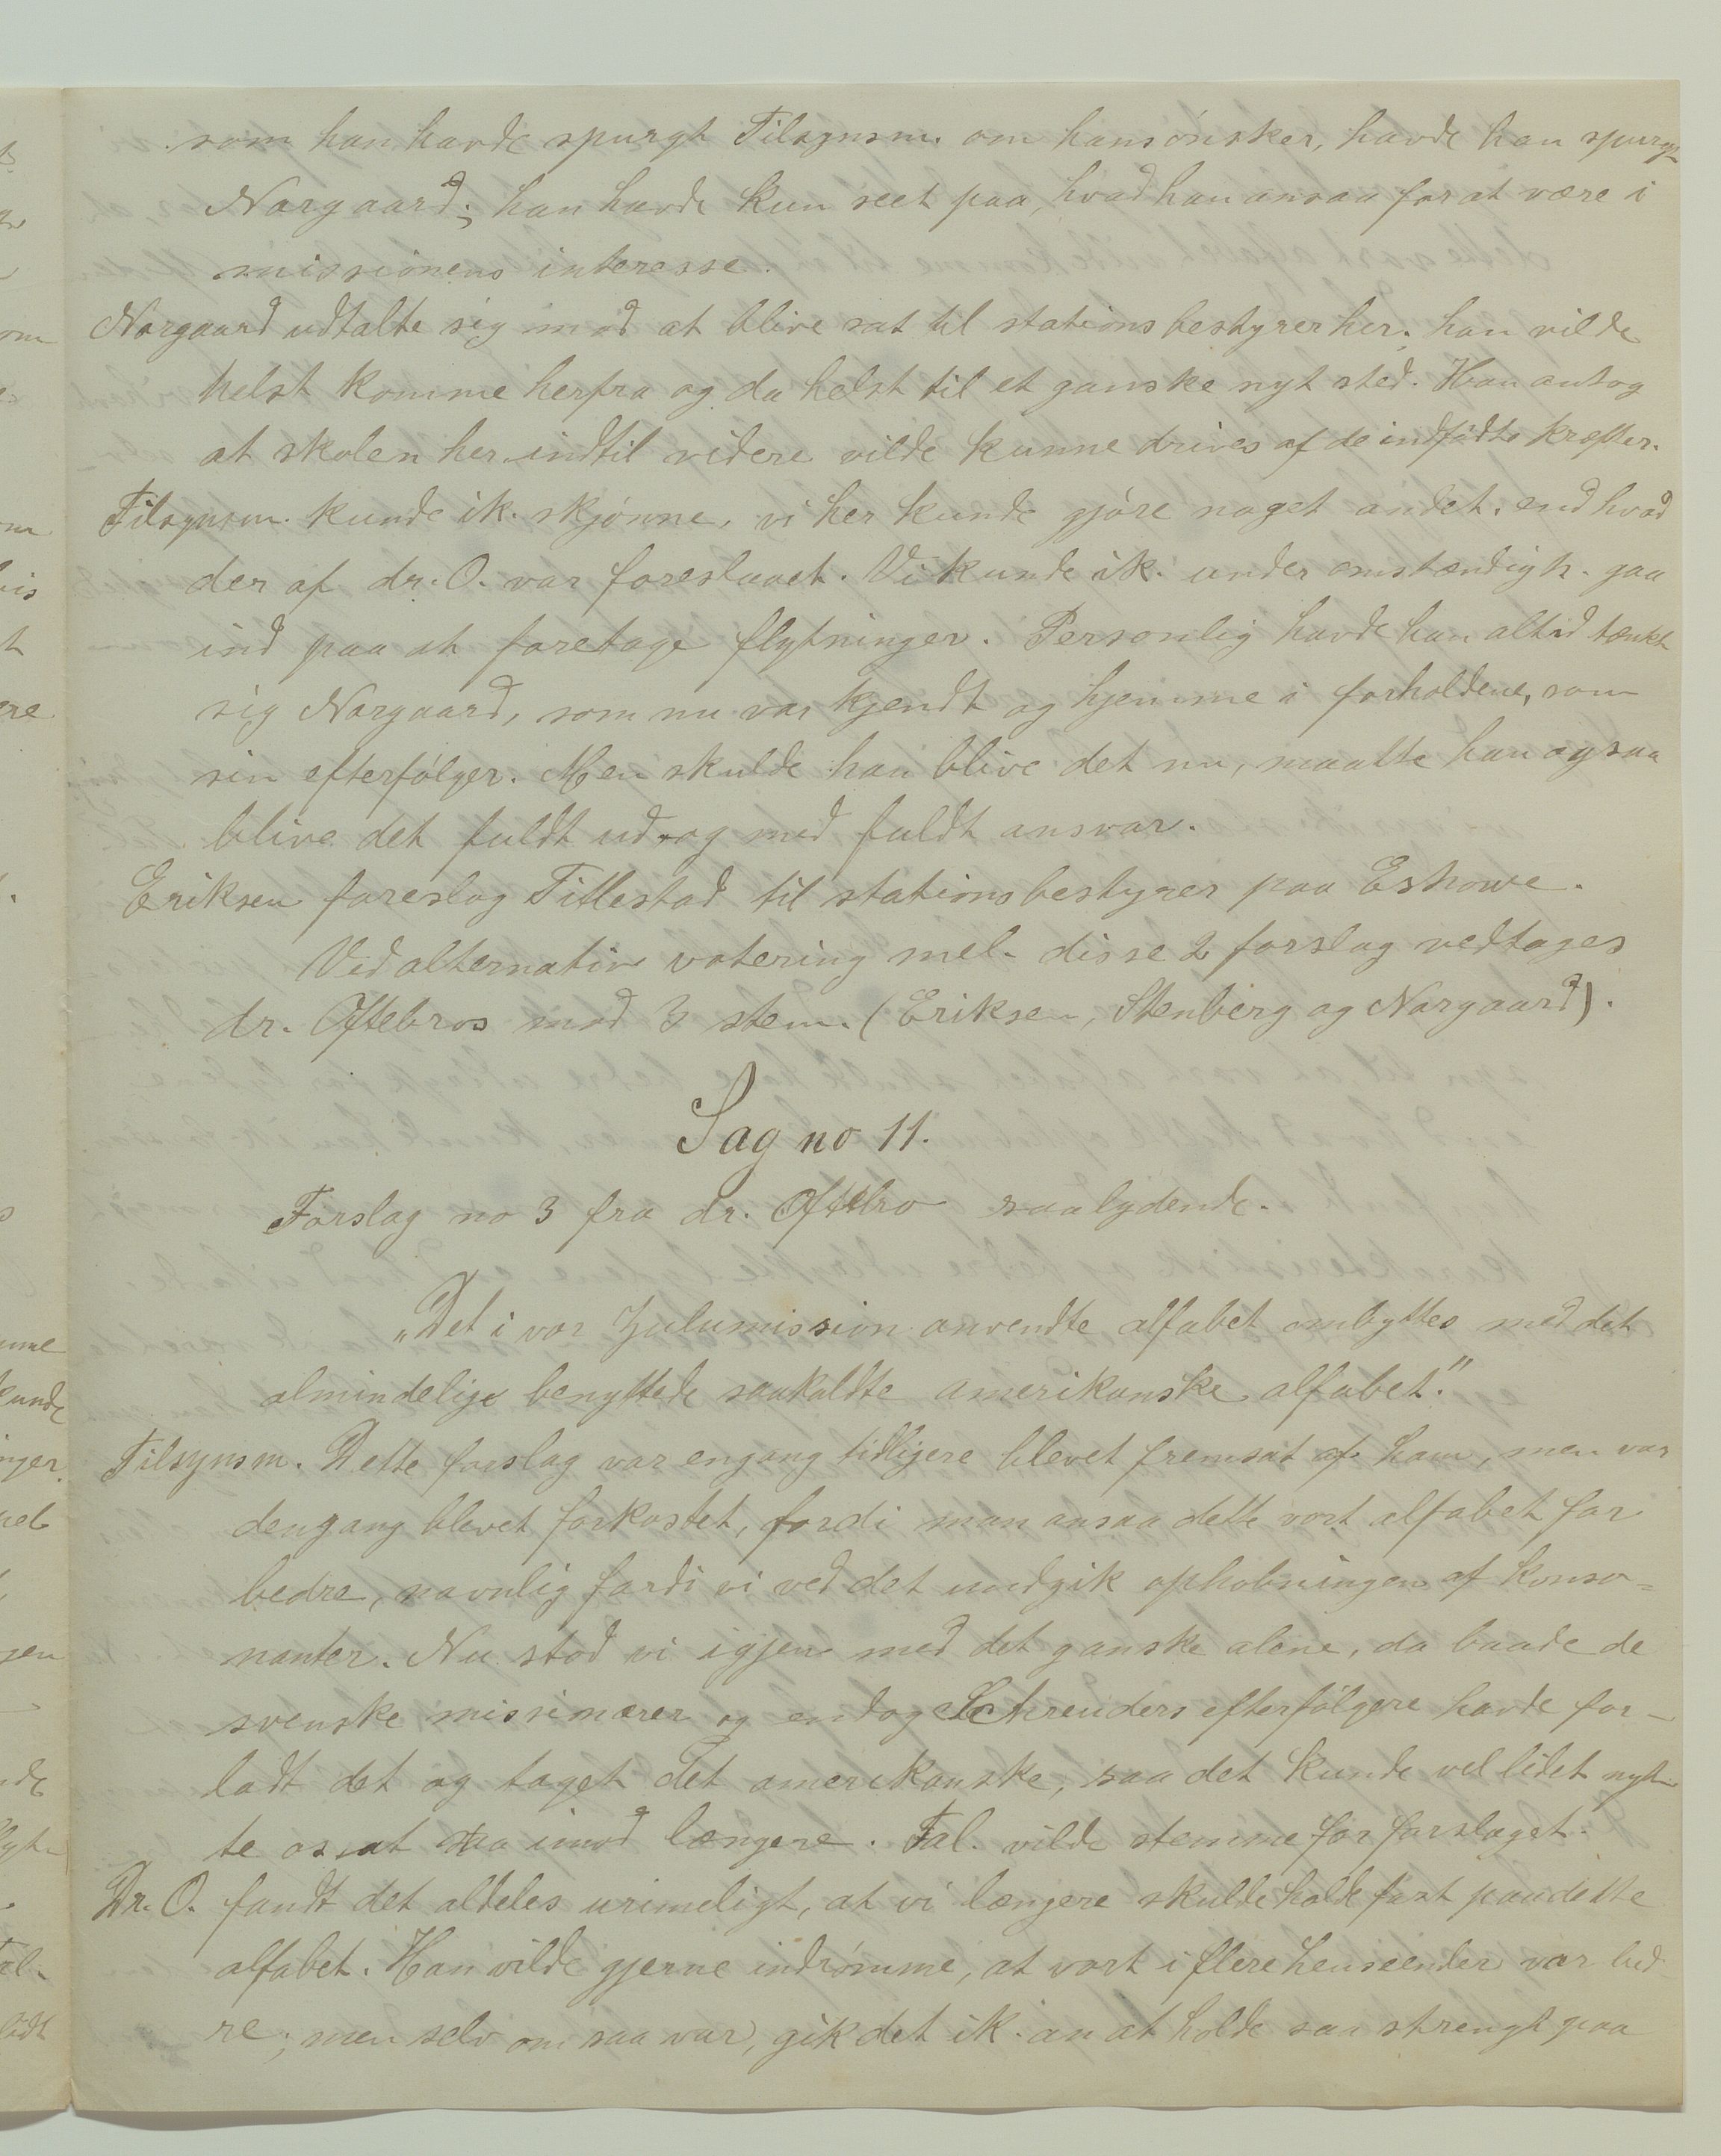 som han havde spurgt Tilsynsm. om hans ønsker, havde han spurgt
Norgaard; han havde kun seet paa, hvad han ansaa for at være i
missionens interesse.
Norgaard udtalte sig mod at blive sat til stationsbestyrer her; han vilde
helst komme herfra og da helst til et ganske nyt sted. Han antog
at skolen her indtil videre vilde kunne drives af de indfødte kræfter.
Tilsynsm. kunde ik. skjønne, vi her kunde gjøre noget andet, end hvad
der af dr. O. var foreslaaet. Vi kunde ik. under omstændigh. gaa
ind paa at foretage flytninger. Personlig havde han altid tænkt
sig Norgaard, som nu var kjendt og hjemme i forholdene, som
sin efterfølger. Men skulde han blive det nu, maatte han ogsaa
blive det fuldt ud og med fuldt ansvar.
Eriksen foreslog Titlestad til stationsbestyrer paa Eshowe.
Ved alternativ votering mel. disse 2 forslag vedtages
dr. Oftebros mod 3 stem. (Eriksen, Stenberg og Norgaard).
Sag no 11.
Forslag no 3 fra dr. Oftebro saalydende.
„Det i vor Zulumission anvendte alfabet ombyttes med det
almindelige benyttede saakaldte amerikanske alfabet."
Tilsynsm. Dette forslag var engang tidligere blevet fremsat af ham, men var
dengang blevet forkastet, fordi man ansaa dette vort alfabet for
bedre, navnlig fordi vi ved det undgik ophobningen af konso-
nanter. Nu stod vi igjen med det ganske alene, da baade de
svenske missionærer og endog Schreuders efterfølgere havde for-
ladt det og taget det amerikanske, saa det kunde vel lidet nyt-
te os at staa imod længere. Tal. vilde stemme for forslaget.
Dr. O. fandt det aldeles urimeligt, at vi længere skulde holde fast paa dette
alfabet. Han vilde gjerne indrømme, at vort i flere henseender var bed-
re; men selv om saa var, gik det ik. an at holde saa strengt paa